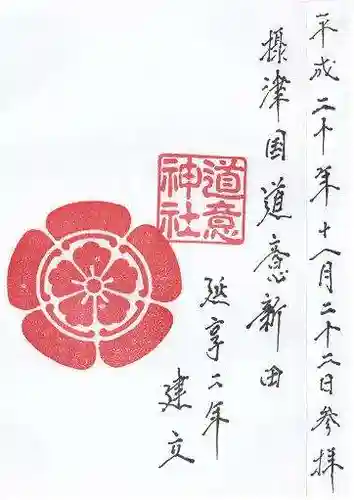 平成二十年十一月二十二日参拝
摂津国道意新田
道意
神社
延享二年
建立